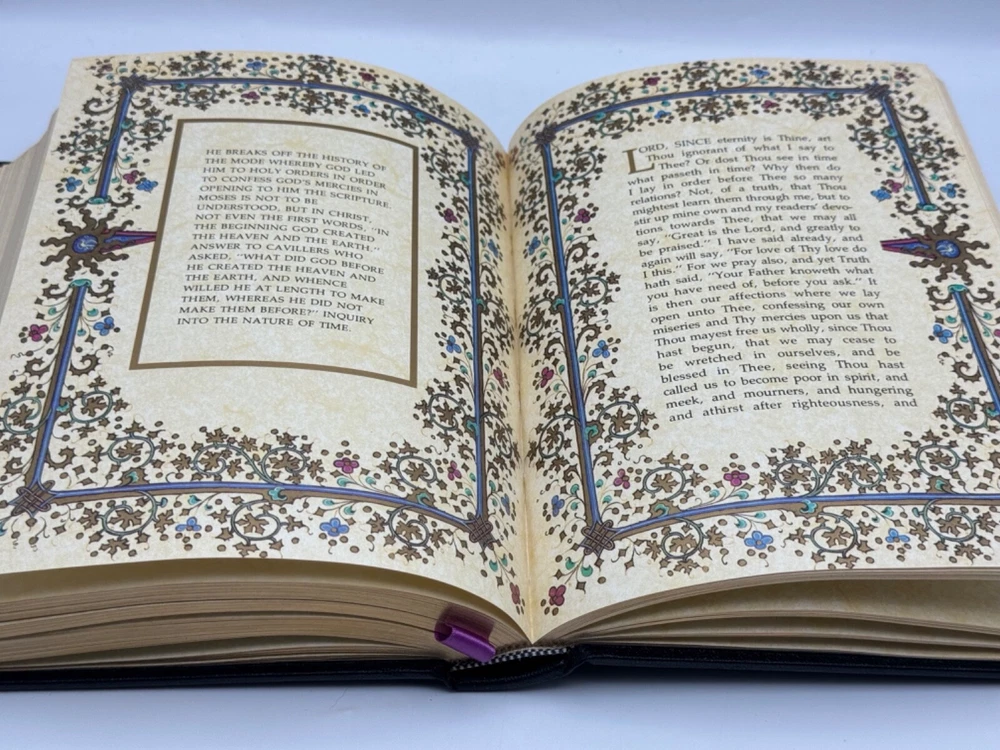 HE BREAKS OFF THE HISTORY OF
THE MODE WHEREBY GOD LED
HIM TO HOLY ORDERS IN ORDER
TO CONFESS GOD'S MERCIES IN
OPENING TO HIM THE SCRIPTURE.
MOSES IS NOT TO BE
UNDERSTOOD, BUT IN CHRIST,
NOT EVEN THE FIRST WORDS, "IN
THE BEGINNING GOD CREATED
THE HEAVEN AND THE EARTH."
ANSWER TO CAVILLERS WHO
ASKED, "WHAT DID GOD BEFORE
HE CREATED THE HEAVEN AND
THE EARTH, AND WHENCE
WILLED HE AT LENGTH TO MAKE
THEM, WHEREAS HE DID NOT
MAKE THEM BEFORE?" INQUIRY
INTO THE NATURE OF TIME.
LORD, SINCE eternity is Thine, art
Thou ignorant of what I say to
Thee? Or dost Thou see in time
what passeth in time? Why then do
I lay in order before Thee so many
relations? Not, of a truth, that Thou
mightest learn them through me, but to
stir up mine own and my readers' devo-
tions towards Thee, that we may all
say, "Great is the Lord, and greatly to
be praised." I have said already, and
again will say, "For love of Thy love do
I this." For we pray also, and yet Truth
hath said, "Your Father knoweth what
you have need of, before you ask." It
is then our affections where we lay
open unto Thee, confessing our own
miseries and Thy mercies upon us that
Thou mayest free us wholly, since Thou
hast begun, that we may cease to
be wretched in ourselves, and be
blessed in Thee, seeing Thou hast
called us to become poor in spirit, and
meek, and mourners, and hungering
and athirst after righteousness, and